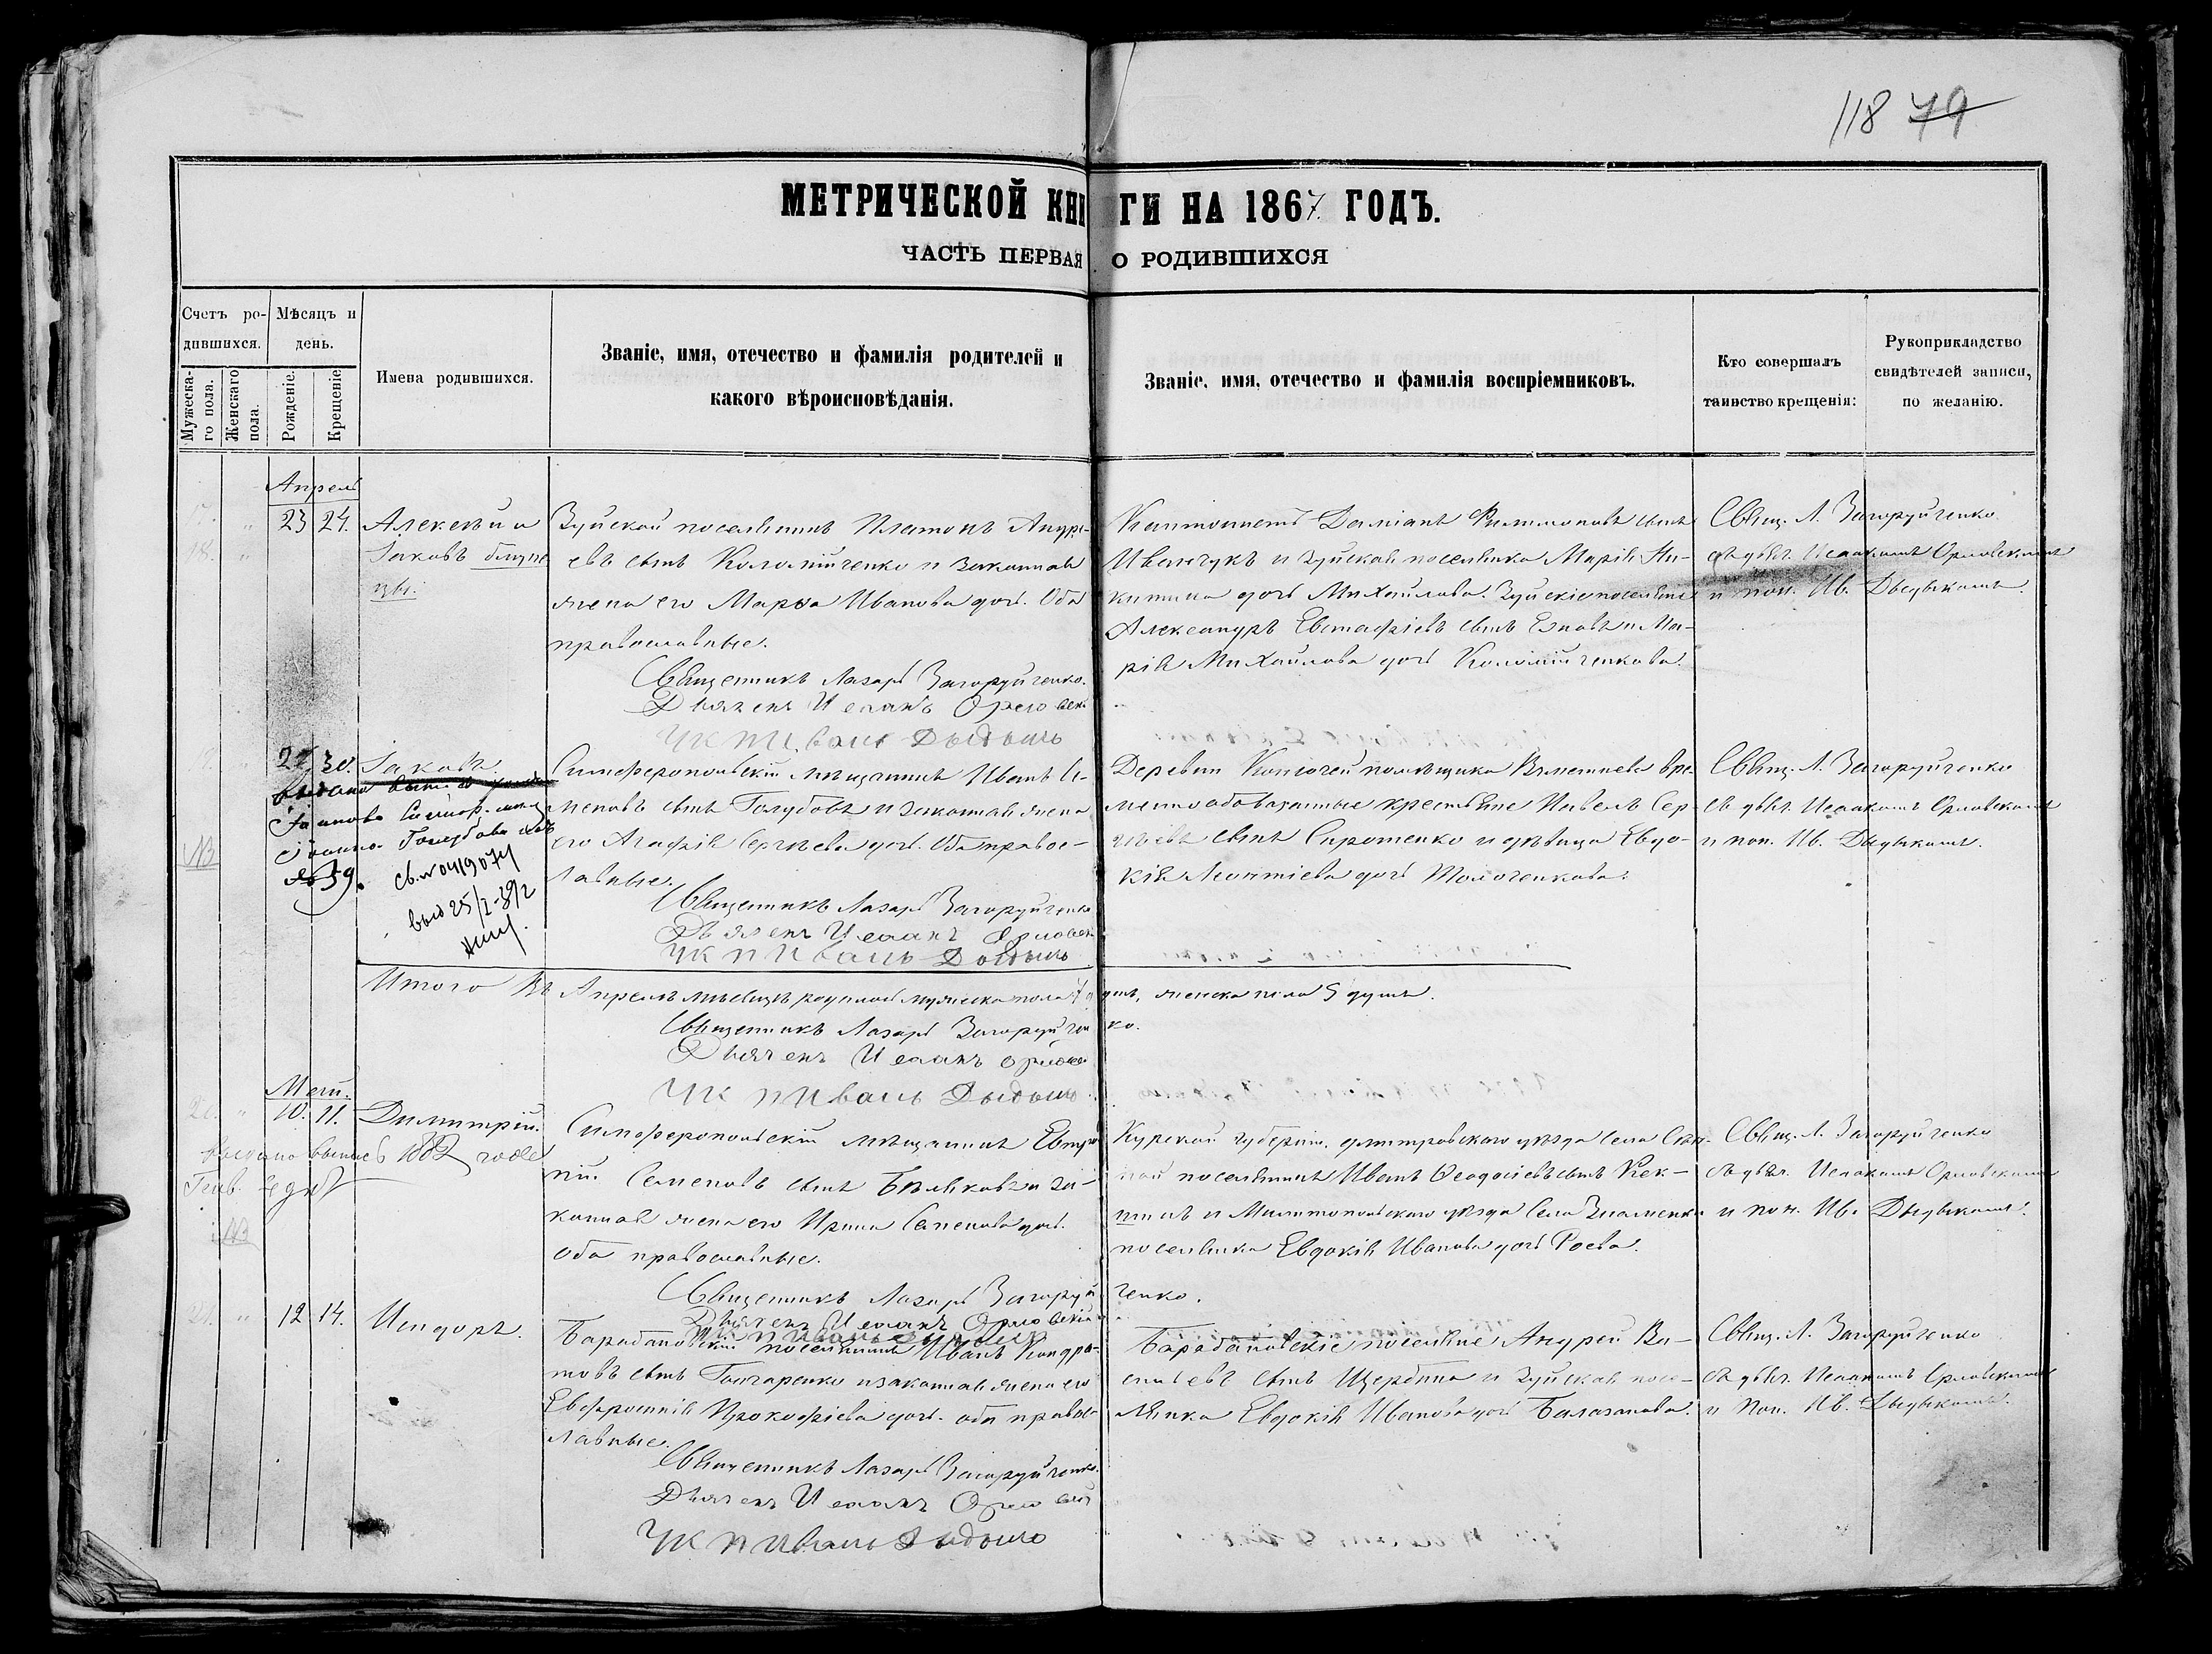 118 79
МЕТРИЧЕСКОЙ КНИГИ НА 1867 ГОДЪ.
ЧАСТЬ ПЕРВАЯ О РОДИВШИХСЯ
Счетъ ро-
дившихся.
Мужеска-
го пола.
Женскаго
пола.
Мѣсяцъ и
день.
Рожденіе.
Крещеніе
Имена родившихся.
Званіе, имя, отечество и фамилія родителей и
какого вѣроисповѣданія.
Званіе, имя, отечество и фамилія воспріемниковъ.
Кто совершалъ
таинство крещенія:
Рукоприкладство
свидѣтелей записи,
по желанію.
Апрель
18.
23 24.
Алексѣй и
Іаковъ близне
цы.
Зуйской поселянинъ Платонъ Андре-
евъ сынъ Коломійченко и законная
жена его Марѳа Иванова дочь. Оба
православные.
Священникъ Лазарь Загоруйченко.
Дьячекъ Исаакъ Орловск
Иванъ Дыдышко
Кантонистъ Даміанъ Филимоновъ сынъ
Иванчукъ и Зуйская поселянка Марія Ни-
китина дочь Михайлова. Зуйскіе поселяне
Александръ Евстафіевъ сынъ и Ма-
рія Михайлова дочь Коломійченкова.
Свящ. Л. Загоруйченко
съ дьяч. Исаакомъ Орловскимъ
и пон. Ив. Дыдышкомъ.
27. 30.
Іаковъ.
Симферопольскій мѣщанинъ Иванъ Се-
меновъ сынъ Голубовъ и законная жена
его Агафія Сергѣева дочь. Оба правос-
лавные.
Священникъ Лазарь Загоруйченко
Дьячекъ Исаакъ Орловск
Иванъ Дыдышко
Деревни помѣщика вре-
меннообязанные крестьяне Павелъ Сер-
гѣевъ сынъ Сиротенко и дѣвица Евдо-
кія Леонтіева дочь Толоченкова.
Свящ. Л. Загоруйченко
съ дьяч. Исаакомъ Орловскимъ
и пон. Ив. Дыдышкомъ.
NB
№ 59.
Голубова
Итого Въ Апрелѣ мѣсяцѣ родилось мужеска пола 7 душъ, женска пола 5 душъ.
Священникъ Лазарь Загоруйченко.
Дьячекъ Исаакъ Орловск
Иванъ Дыдышко
Май.
20.
10. 11.
Димитрій.
1882 годъ
NB
Симферопольскій мѣщанинъ Евтро-
пій Семеновъ сынъ Бѣляковъ и за-
конная жена его Ирина Семенова дочь.
Оба православные.
Священникъ Лазарь Загоруйченко.
Дьячекъ Исаакъ Орловскій
Курской губерніи, дмитровскаго уѣзда села
поселянинъ Иванъ Ѳеодосіевъ сынъ
и Мелитопольскаго уѣзда села Знаменки
поселянка Евдокія Иванова дочь Роева.
Свящ. Л. Загоруйченко
съ дьяч. Исаакомъ Орловскимъ
и пон. Ив. Дыдышкомъ.
21.
12 14.
Исидоръ.
Барабановскій поселянинъ Иванъ Кондра-
товъ сынъ Гончаренко и законная жена его
Евфросинія Прокофіева дочь. оба правос-
лавные.
Священникъ Лазарь Загоруйченко.
Дьячекъ Исаакъ Орловск
Иванъ Дыдышко
Барабановскіе поселяне Андрей Ва-
сильевъ сынъ Щербина и Зуйская посе-
лянка Евдокія Иванова дочь Балазанова.
Свящ. Л. Загоруйченко
съ дьяч. Исаакомъ Орловскимъ
и пон. Ив. Дыдышкомъ.